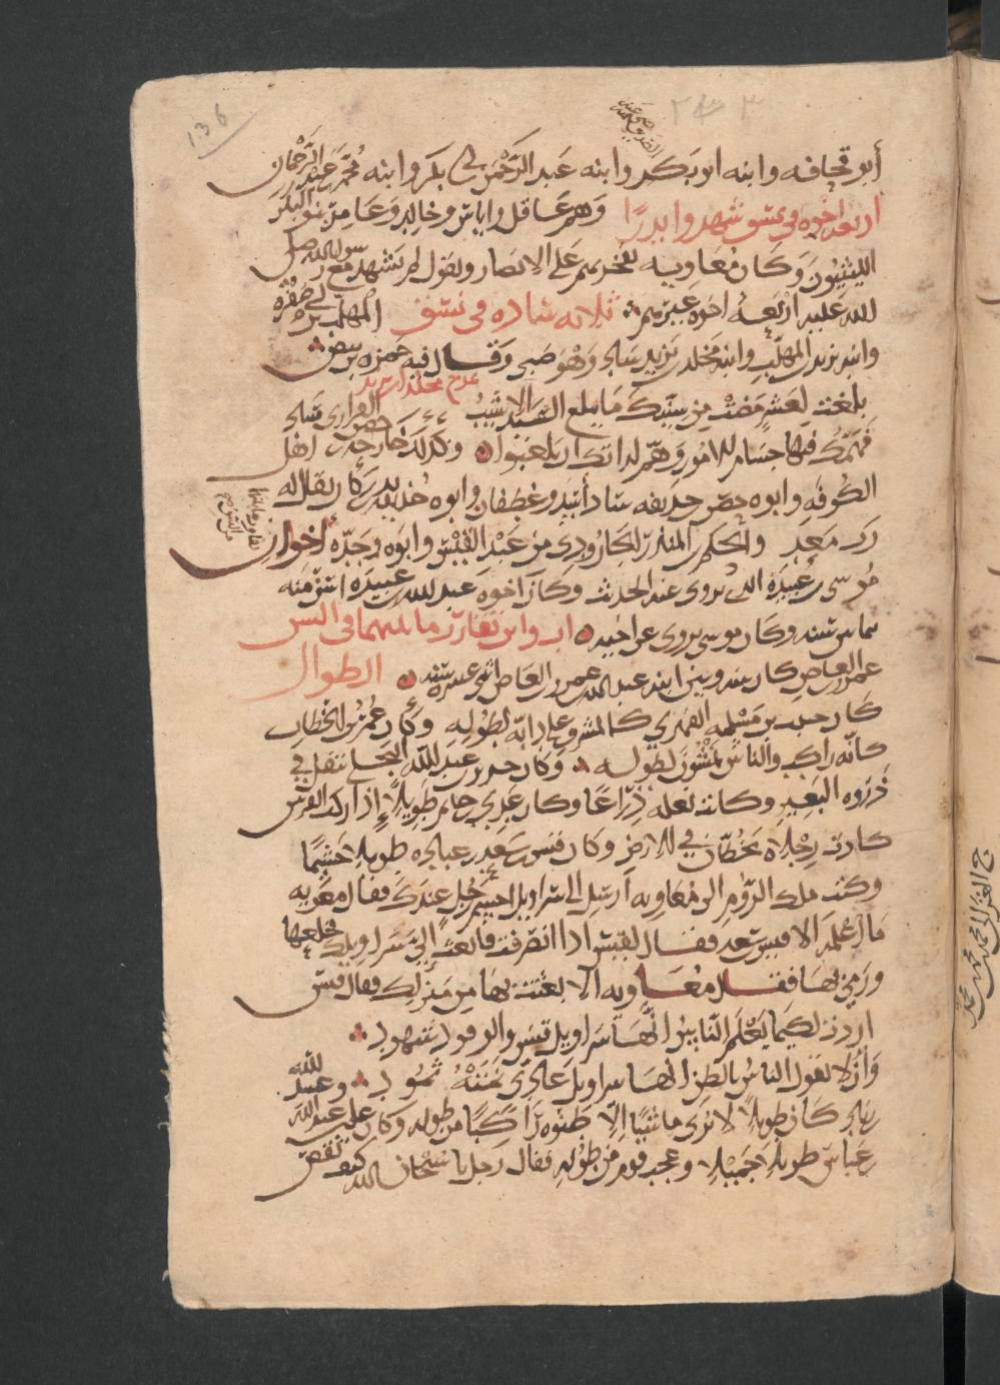 136
أبو قحافه وابنه ابو بكر وابنه عبد الرحمن بن ابي بكر وابنه محمد بن عبد الرحمن
اربعه اخوه في نسق شهدوا بدرا وهم عاقل واياس وخالد وعامر بنو البكير
الليثيون وكان معاويه يفخر بهم على الانصار ويقول لم يشهد مع رسول الله صلى
الله عليه اربعه اخوه غيرهم ثلاثه ساده في نسق المهلب بن ابي صفره
وابنه يزيد بن المهلب وابنه مخلد بن يزيد ساد وهو صبي وقال فيه حمزه بن بيض
يمدح مخلد بن يزيد
بلغت لعشر مضت من سنيك ما يبلغ السيد الاشيب
فهمك فيها جسام الامور وهم لداتك ان يلعبوا وكذلك خارجه بن حصن الفزاري ساد اهل
الكوفه وابوه حصن بن حذيفه ساد أسد وغطفان وابوه حذيفه بن بدر كان يقال له
رب معد والحكم بن المنذر بن الجارود من عبد القيس وابوه وجده اخوان
موسى بن عبيده الذي يروى عنه الحديث وكان اخوه عبد الله بن عبيده اسن منه
بستين سنه وكان موسى يروى عن اخيه اب وابن تقارب ما بينهما في السن
عمرو بن العاص كان بينه وبين ابنه عبد الله بن عمرو بن العاص اثنى عشره سنه الطوال
كان حبيب بن مسلمه الفهري كالمشرف على دابه لطوله وكان عمر بن الخطاب
كانه راكب والناس يمشون لطوله وكان جرير بن عبد الله البجلي يتفل في
ذروه البعير وكانت نعله ذراعا وكان عدي بن حاتم طويلا إذا ركب الفرس
كادت رجلاه تخطان في الارض وكان قيس بن سعد بن عباده طويلا جسيما
وكتب ملك الروم الى معاويه أرسل الي سراويل اجسم رجل عندك فقال معاويه
ما أعلمه الا قيس بن سعد فقال لقيس اذا انصرفت فابعث الي بسراويلك فخلعها
ورمى بها فقال معاويه الا بعثت بها من منزلك فقال قيس
اردت لكيما يعلم الناس انها سراويل قيس والوفود شهود
وأن لا يقول الناس بالظن انها سراويل عادي نمته ثمود وعبيد الله
بن زياد كان طويلا لا يرى ماشيا إلا ظنوه راكبا من طوله وكان علي بن عبد الله
بن عباس طويلا جميلا وعجب قوم من طوله فقال رجل يا سبحان الله كيف نقص